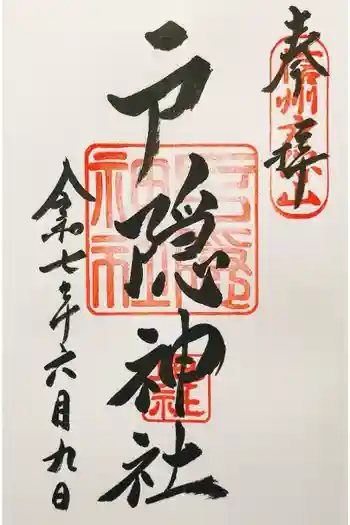 奉拝
戸隠神社
令和七年六月九日
信州戸隠山
戸隠神社